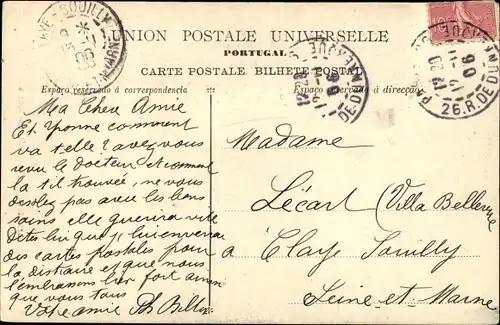 UNION POSTALE UNIVERSELLE
PORTUGAL
CARTE POSTALE. BILHETE POSTAL
Espaço reservado á correspondencia
Espaço reservado á direcção
Ma Chere Amie
Et Yvonne comment
va telle? avez vous
revu le docteur et comment
la til trouvée, ne vous
desolez pas avec les bons
soins elle guerira vite
Dites lui que je lui enverrai
des cartes postales pour
la distraire et que nous
l'embrassons bien fort ainsi
que vous tous
Votre amie
Madame
Lécart (Villa Bellevue
à Claye Souilly
Seine-et-Marne
26.R.DE DUNKERQUE